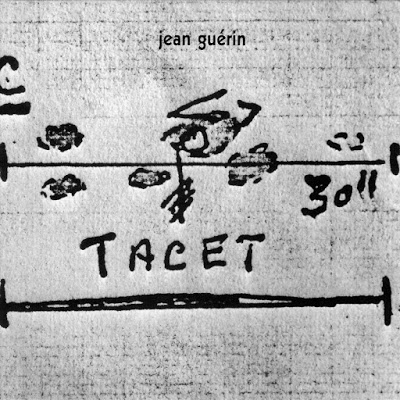 jean guérin
30"
TACET